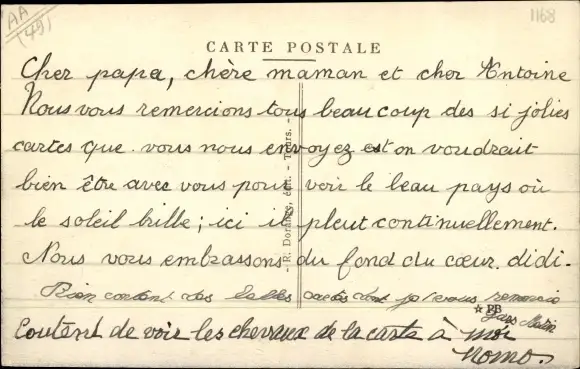 AA
(49)
1168
CARTE POSTALE
Cher papa, chère maman et cher Antoine
Nous vous remercions tous beaucoup des si jolies
cartes que vous nous envoyez et on voudrait
bien être avec vous pour voir le beau pays où
le soleil brille; ici il pleut continuellement.
Nous vous embrassons du fond du cœur. didi.
Bien content des belles cartes dont je vous remercie
Content de voir les chevaux de la carte à moi
Momo.
R. Dorange, édit. - Tours.